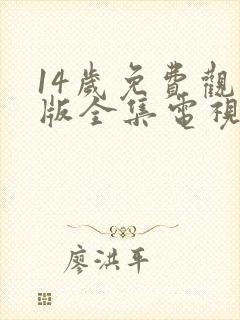 14歲免費觀
版全集電視
廖洪平